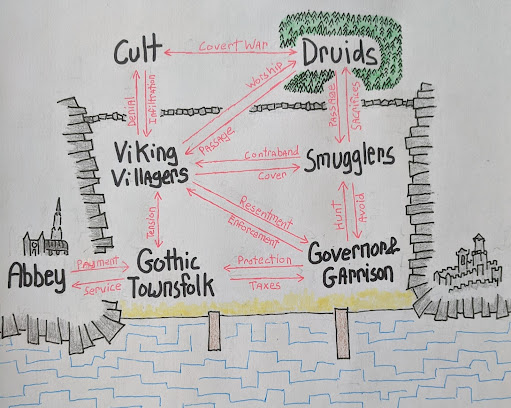 Cult
Covert War
Druids
Denial
Infiltration
Worship
Passage
Passage
Sacrifices
Viking
Villagers
Contraband
Cover
Smugglers
Tension
Resentment
Enforcement
Hunt
Avoid
Abbey
Payment
Service
Gothic
Townsfolk
Protection
Taxes
Governor &
Garrison